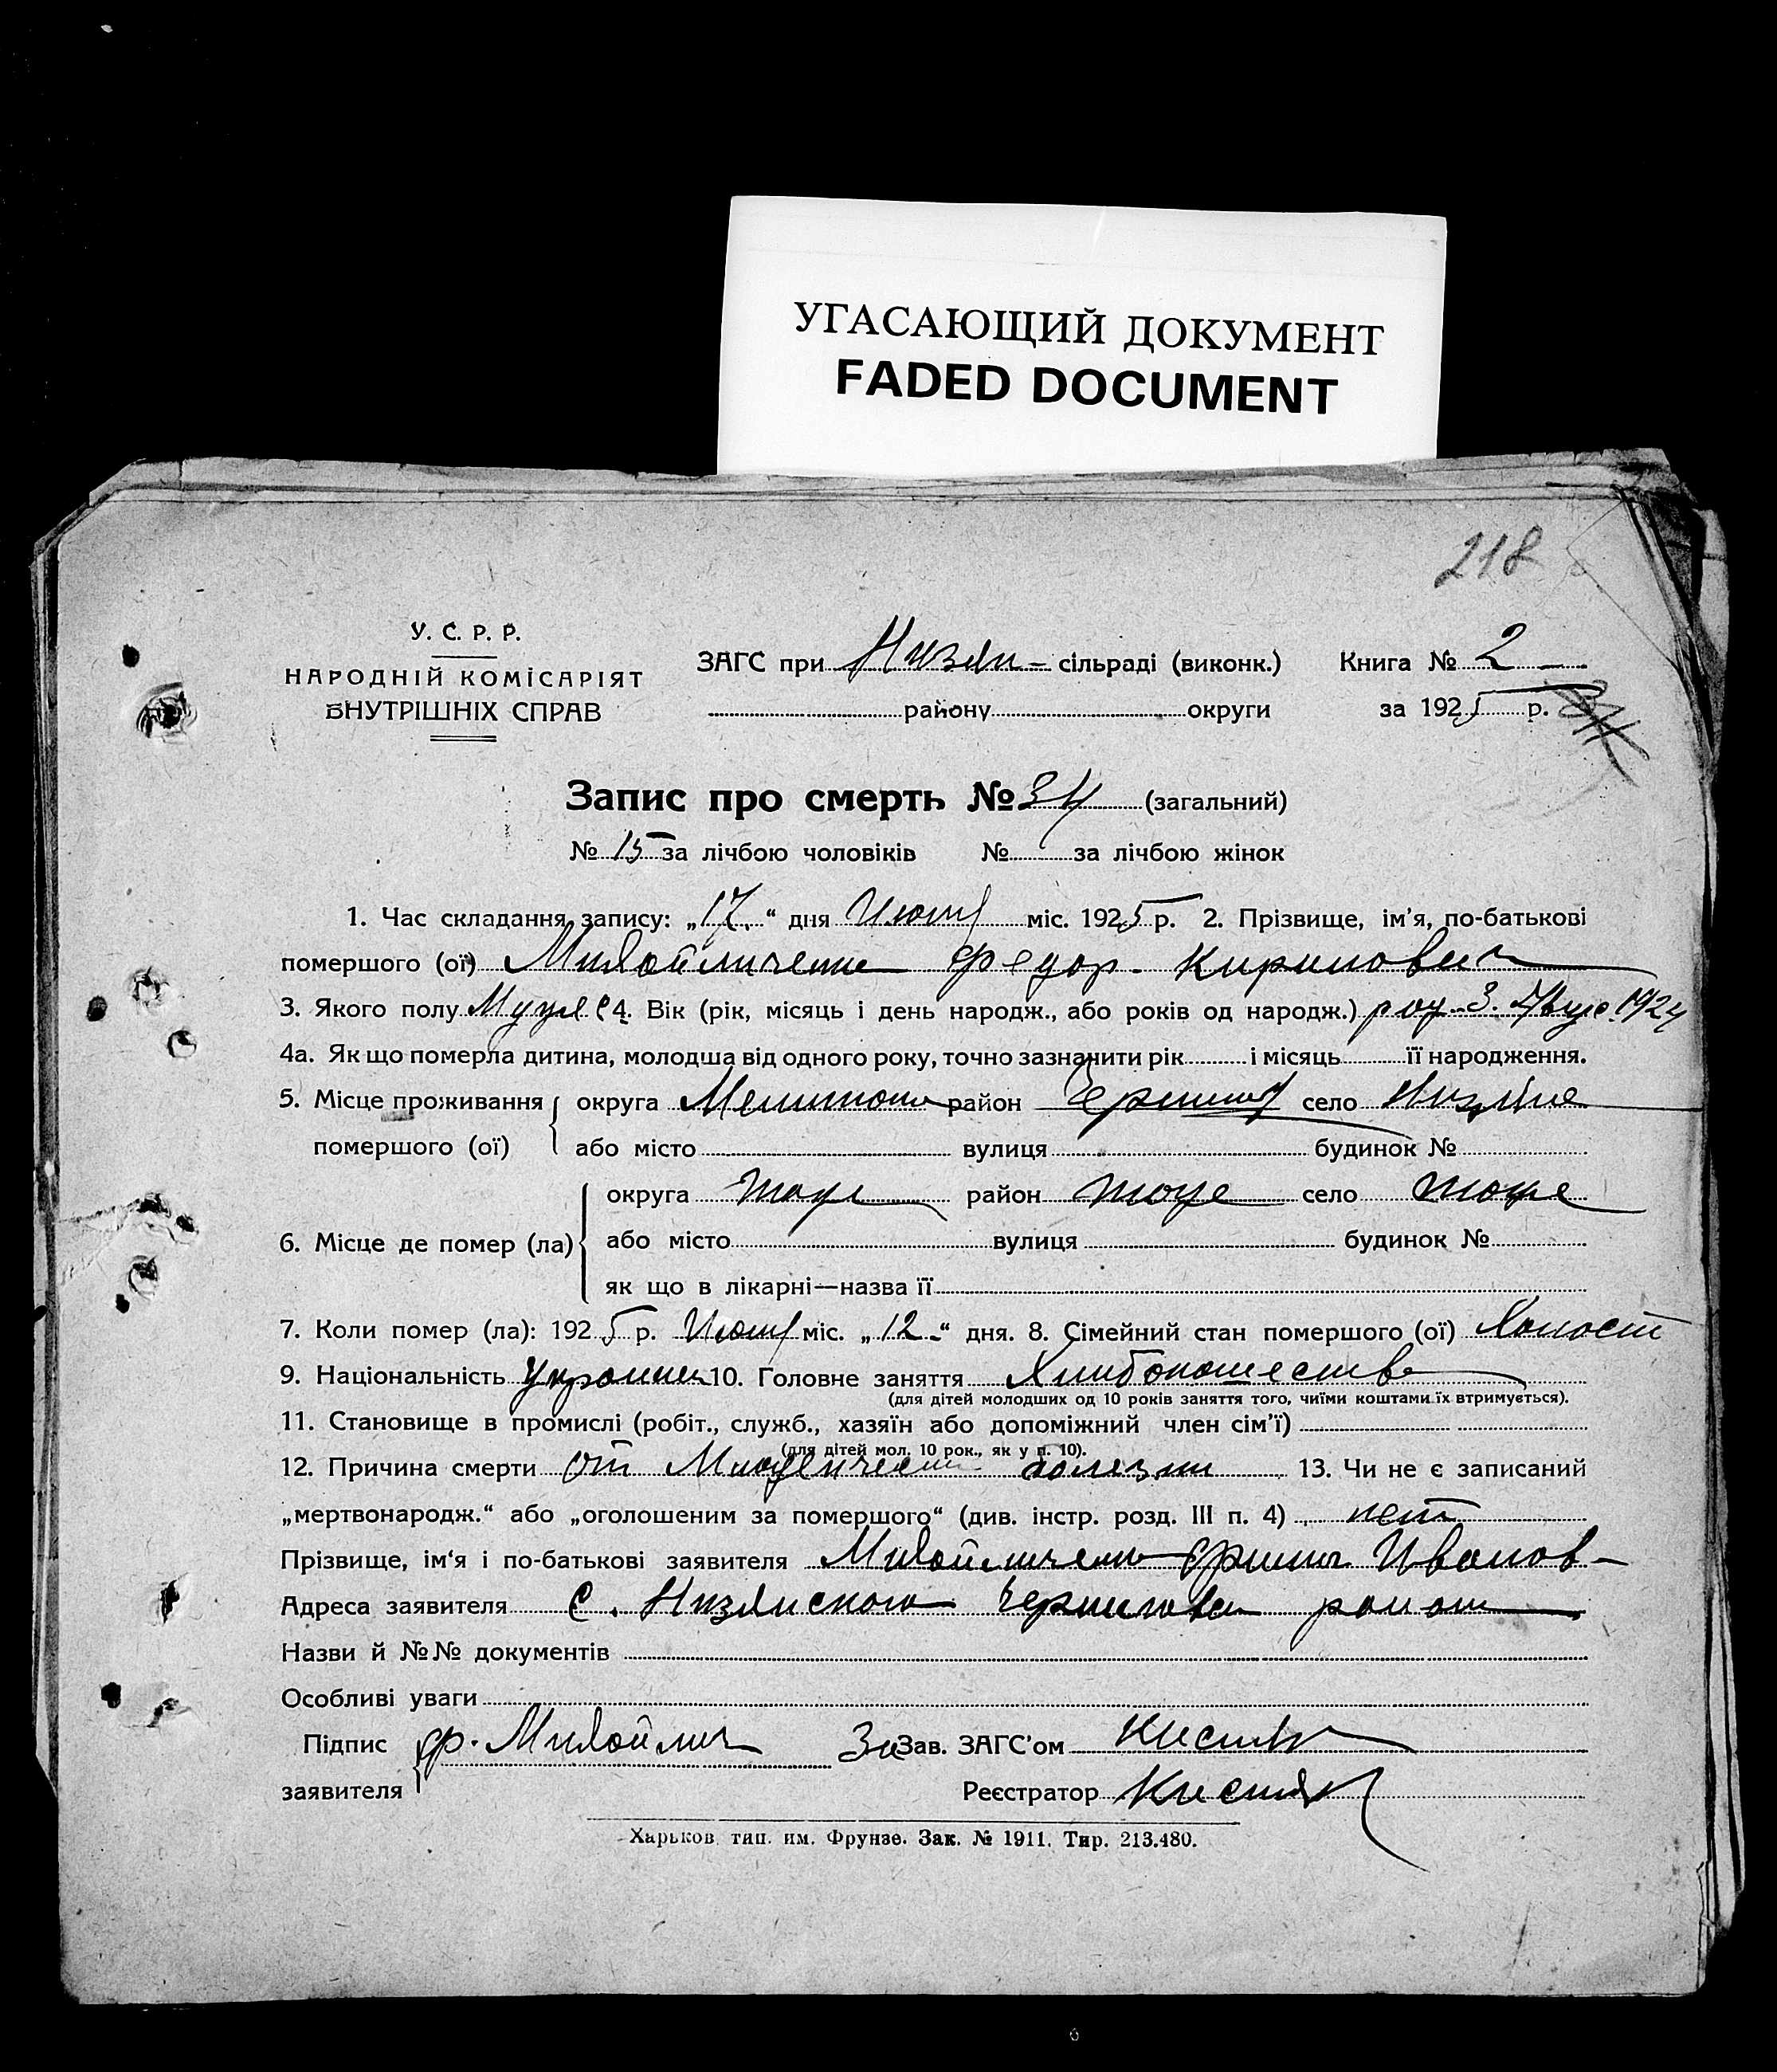 УГАСАЮЩИЙ ДОКУМЕНТ
FADED DOCUMENT
218
У. С. Р. Р.
НАРОДНІЙ КОМІСАРІЯТ
ВНУТРІШНІХ СПРАВ
ЗАГС при Низян- сільраді (виконк.) Книга № 2
району округи за 1925 р.
Запис про смерть № 34 (загальний)
№ 15 за лічбою чоловіків № за лічбою жінок
1. Час складання запису: „17“ дня Июля міс. 1925 р. 2. Прізвище, ім'я, по-батькові
помершого (ої) Михайличенко Федор Кирилович
3. Якого полу 4. Вік (рік, місяць і день народж., або років од народж.) род. 3. 1924
4а. Як що померла дитина, молодша від одного року, точно зазначити рік і місяць її народження.
5. Місце проживання округа Мелитоп район село
помершого (ої) або місто вулиця будинок №
округа тоже район тоже село тоже
6. Місце де помер (ла) або місто вулиця будинок №
як що в лікарні—назва її
7. Коли помер (ла): 1925 р. Июля міс. „12“ дня. 8. Сімейний стан помершого (ої) Холост
9. Національність 10. Головне заняття
(для дітей молодших од 10 років заняття того, чиїми коштами їх втримується).
11. Становище в промислі (робіт., служб., хазяїн або допоміжний член сім'ї)
(для дітей мол. 10 рок., як у п. 10).
12. Причина смерти от Младенческ болезни 13. Чи не є записаний
„мертвонародж.“ або „оголошеним за помершого“ (див. інстр. розд. III п. 4) нет
Прізвище, ім'я і по-батькові заявителя Михайличенко Иванов-
Адреса заявителя с. Низянского Чернигов район
Назви й №№ документів
Особливі уваги
Підпис Михайлич За Зав. ЗАГС'ом
заявителя Реєстратор
Харьков, тип. им. Фрунзе. Зак. № 1911. Тир. 213.480.